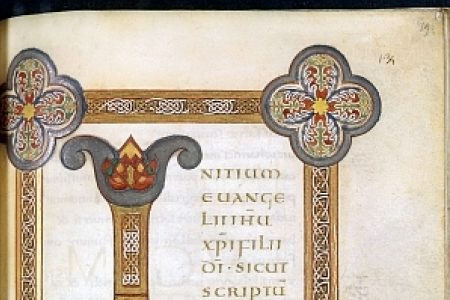 INITIUM
EUANGE
LII IHŪ
XPĪ FILII
DĪ · SICUT
SCRIPTŪ